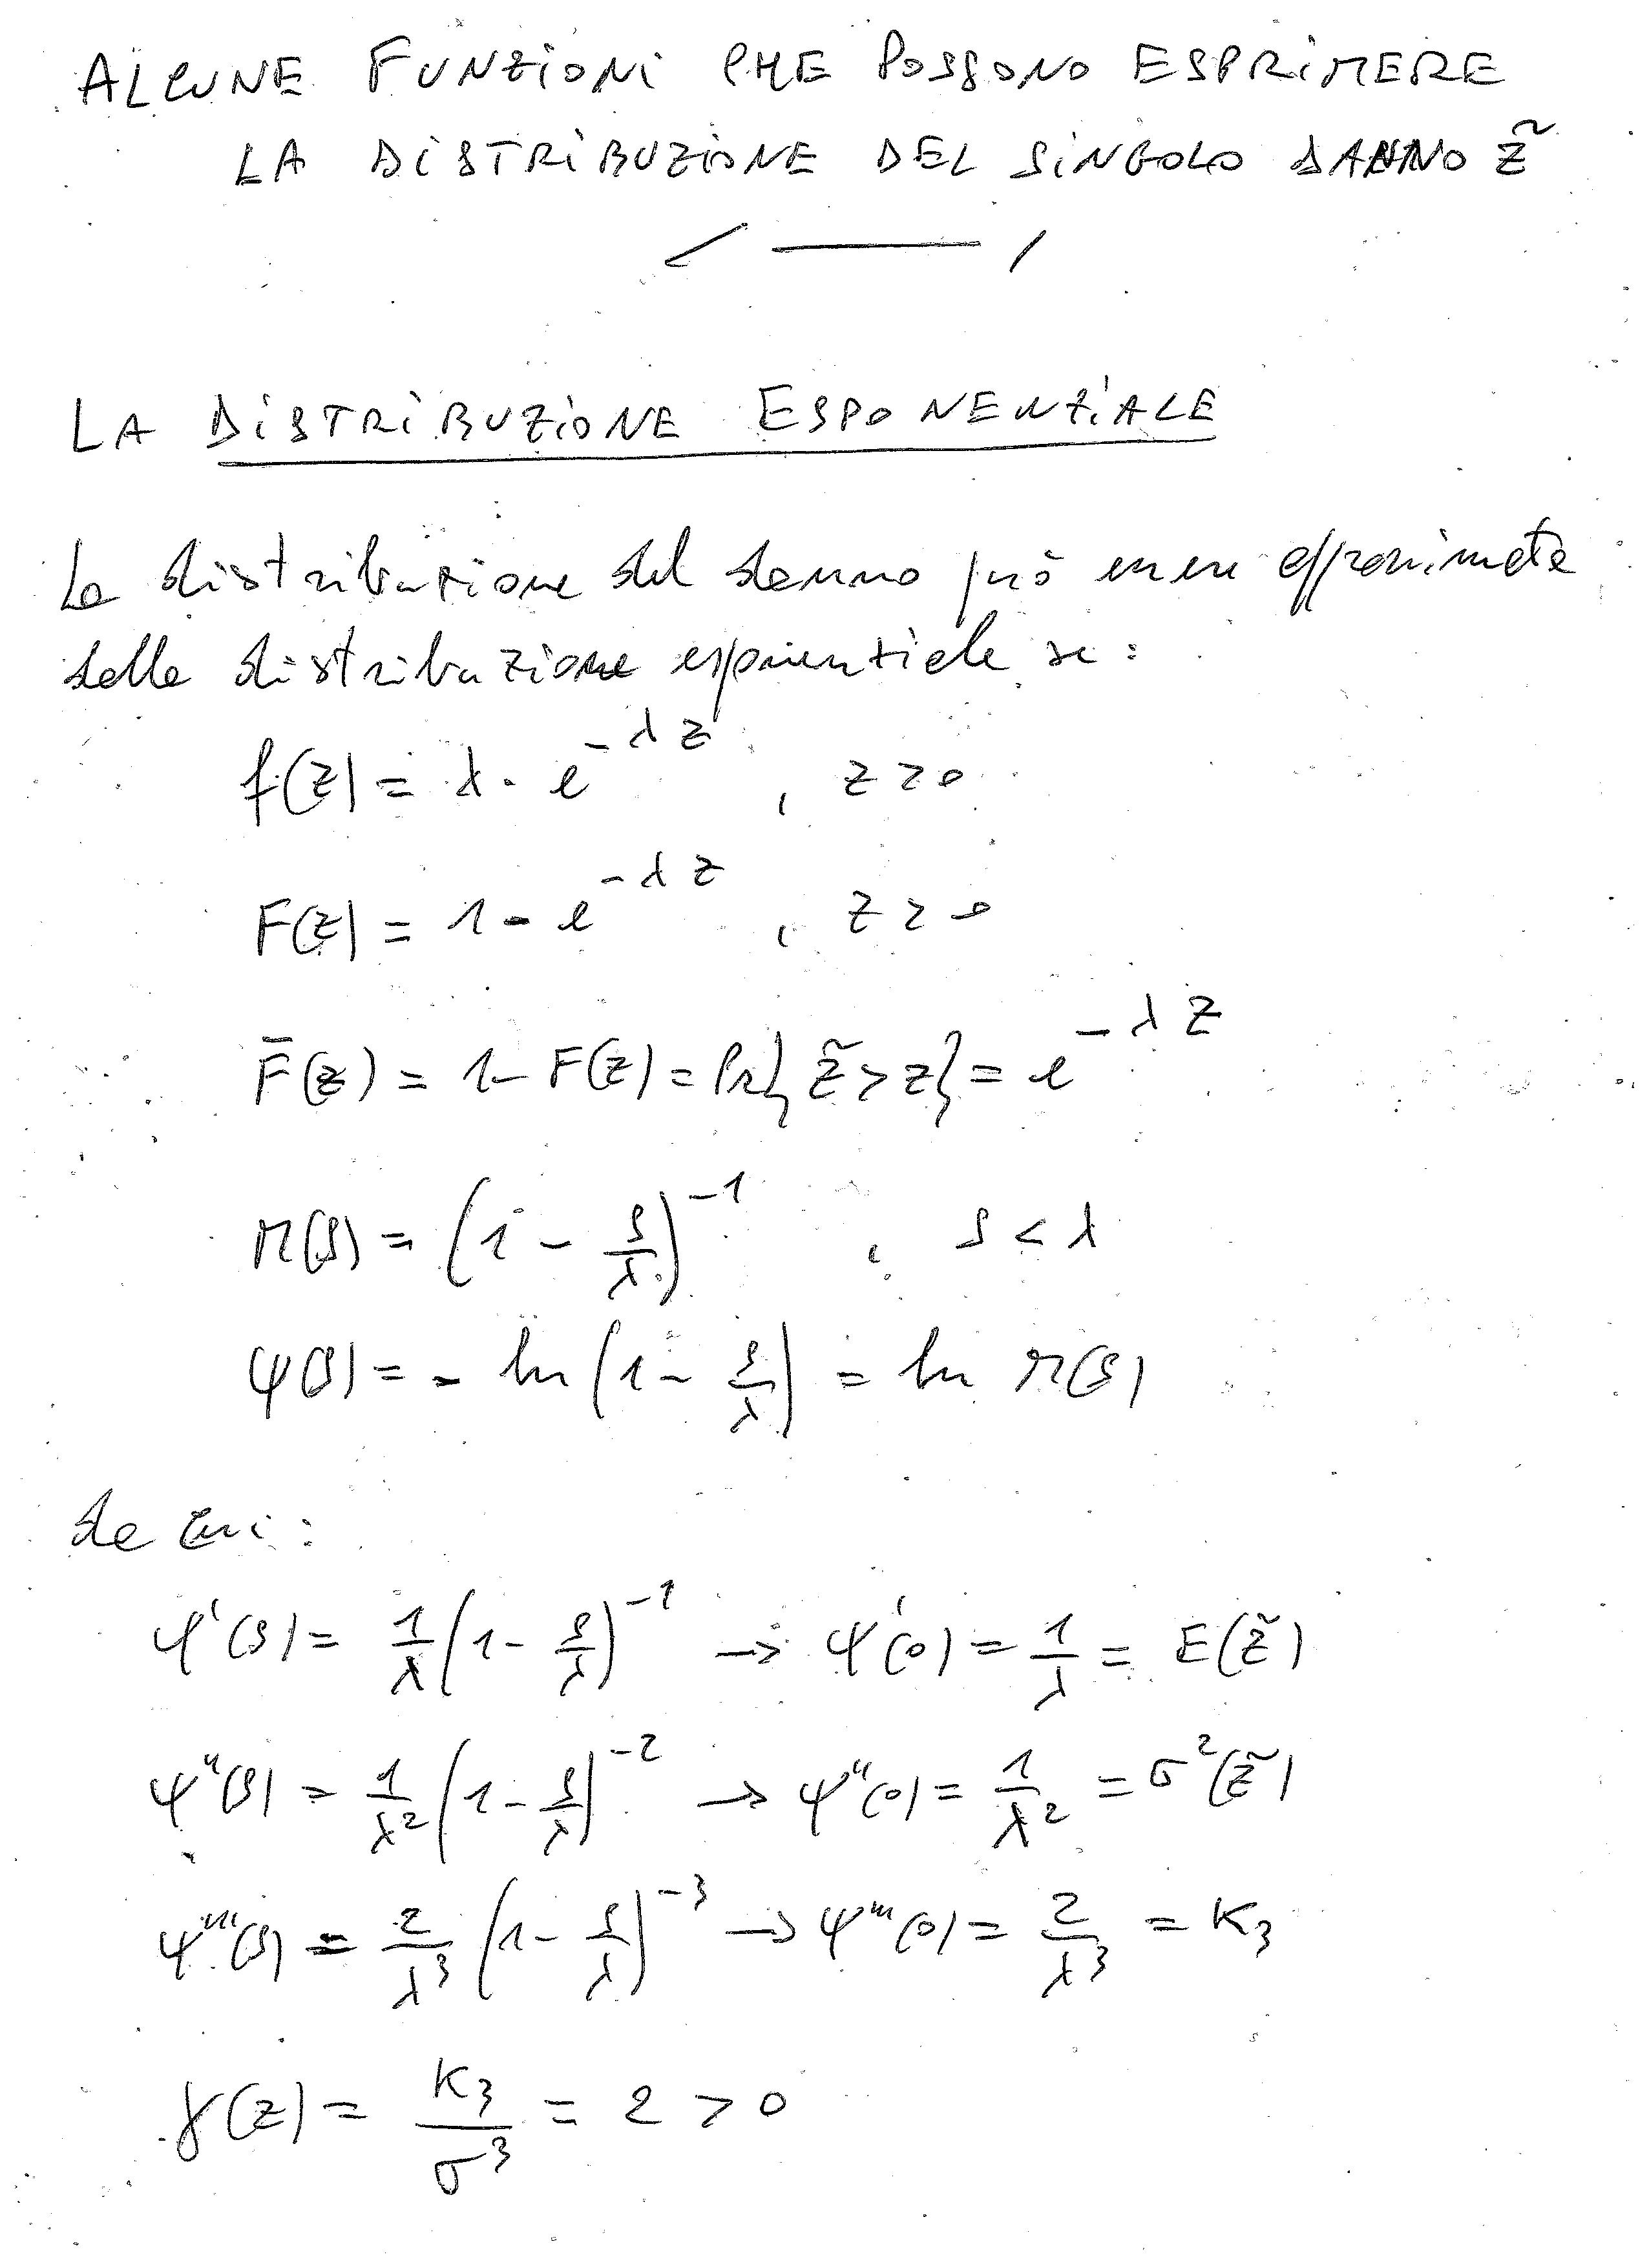 ALCUNE FUNZIONI CHE POSSONO ESPRIMERE
LA DISTRIBUZIONE DEL SINGOLO DANNO z̃
LA DISTRIBUZIONE ESPONENZIALE
La distribuzione del danno può essere approssimata
dalla distribuzione esponenziale se:
f(z) = λ · e^{-λz} , z ≥ 0
F(z) = 1 - e^{-λz} , z ≥ 0
F̄(z) = 1 - F(z) = Pr{z̃ > z} = e^{-λz}
M(s) = (1 - s/λ)^{-1} , s < λ
ψ(s) = - ln(1 - s/λ) = ln M(s)
da cui:
ψ'(s) = 1/λ (1 - s/λ)^{-1} → ψ'(0) = 1/λ = E(z̃)
ψ''(s) = 1/λ² (1 - s/λ)^{-2} → ψ''(0) = 1/λ² = σ²(z̃)
ψ'''(s) = 2/λ³ (1 - s/λ)^{-3} → ψ'''(0) = 2/λ³ = K₃
γ(z) = K₃/σ³ = 2 > 0